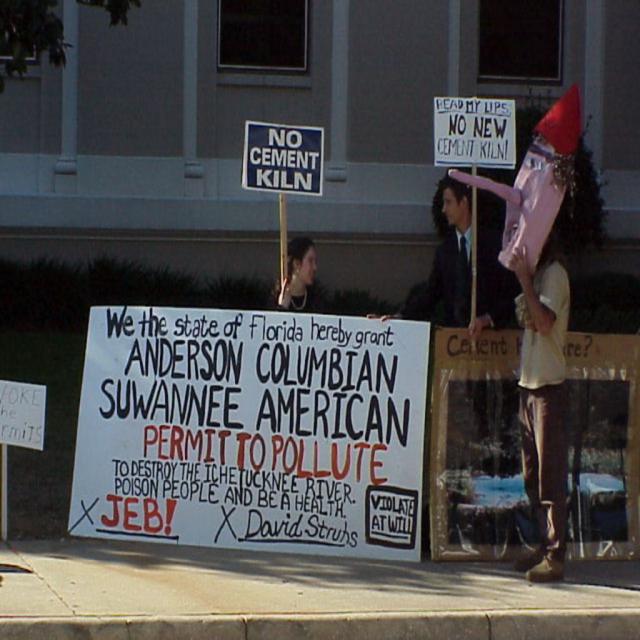 NO
CEMENT
KILN
READ MY LIPS:
NO NEW
CEMENT KILN!
We the state of Florida hereby grant
ANDERSON COLUMBIAN
SUWANNEE AMERICAN
PERMIT TO POLLUTE
TO DESTROY THE ICHETUCKNEE RIVER.
POISON PEOPLE AND BE A HEALTH.
X JEB! X David Struhs
VIOLATE
AT WILL
Cement here?